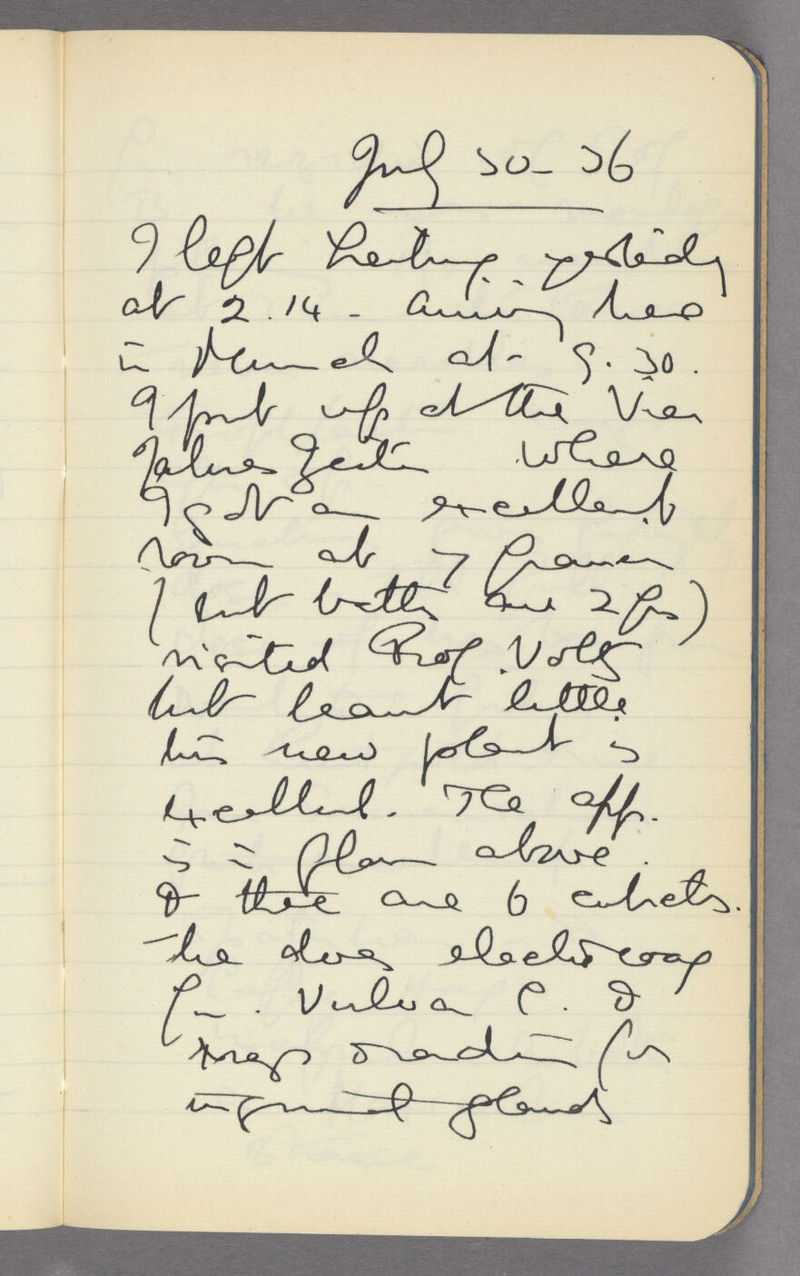 July 30-36
I left yesterday
at 2.14 - arriving here
in Munich at 9.30.
I put up at the Vier
Jahreszeiten where
I got an excellent
room at 7
(but baths are 2
visited Prof. Voltz
but learnt little
his new plant is
excellent. The app.
is in above.
& there are 6 cubicles.
He does
for Vulva C. &
X rays for
inguinal glands